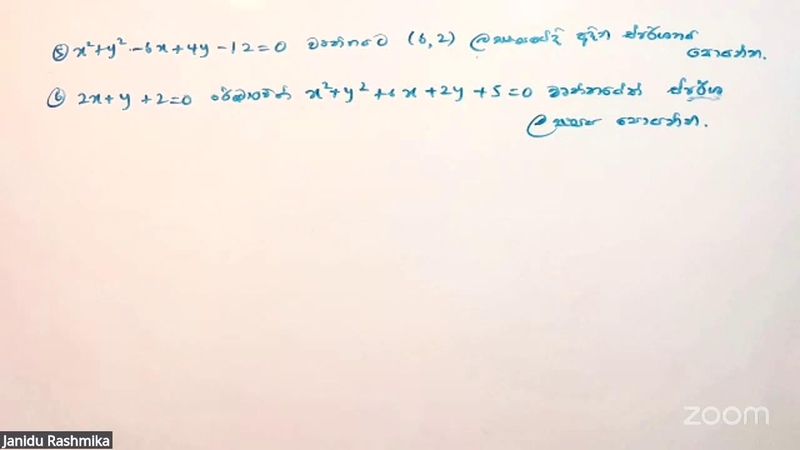 ⑤ x²+y²-6x+4y-12=0 වෘත්තයට (6,2) ලක්ෂ්‍යයේදී ඇදි ස්පර්ශකය
සොයන්න.
⑥ 2x+y+2=0 රේඛාවේත් x²+y²+6x+2y+5=0 වෘත්තයේත් ස්පර්ශ
ලක්ෂ්‍ය සොයන්න.
zoom
Janidu Rashmika